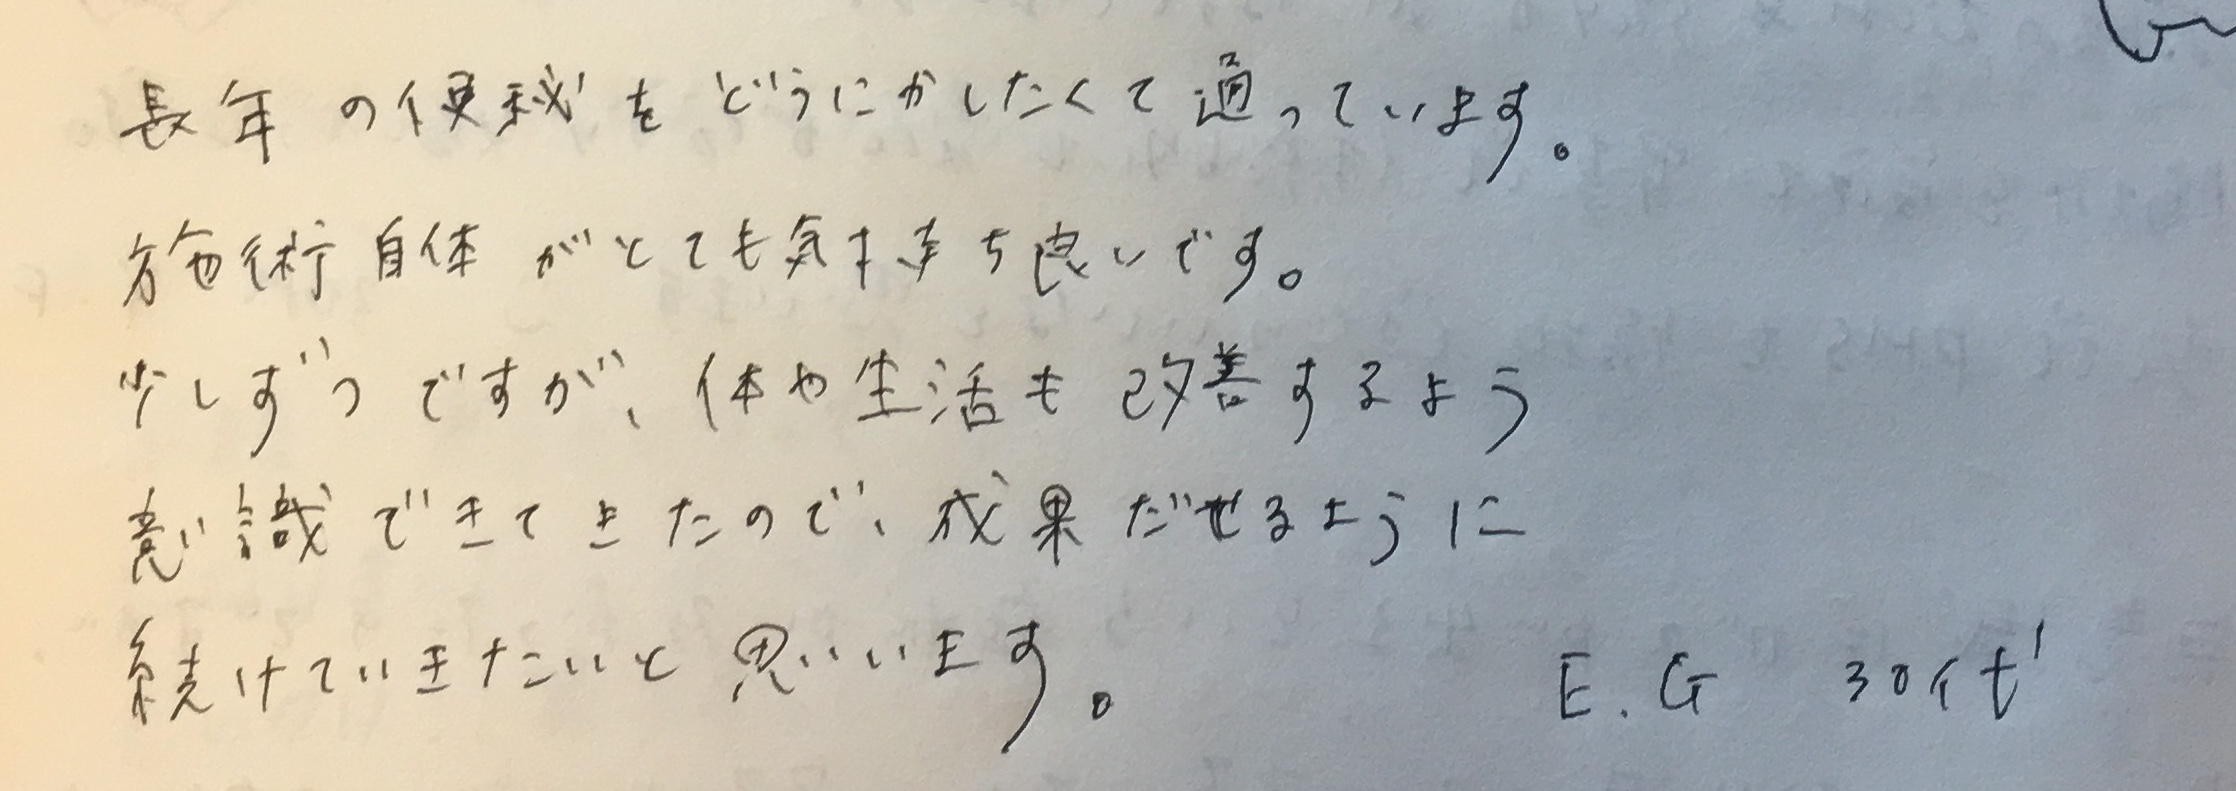 長年の便秘をどうにかしたくて通っています。
施術自体がとても気持ち良いです。
少しずつですが、体や生活も改善するよう
意識できてきたので、成果だせるように
続けていきたいと思います。
E.G 30代